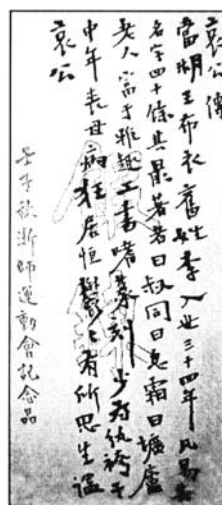 哀公傳
當湖王布衣舊姓李入世三十四年凡易其
名字四十餘其最著者曰叔同曰息霜曰壙廬
老人富于雅趣工書嗜篆刻少為紈袴子
中年喪母病狂居恒鬱々有所思生謚
哀公
壬子秋浙師運動會記念品